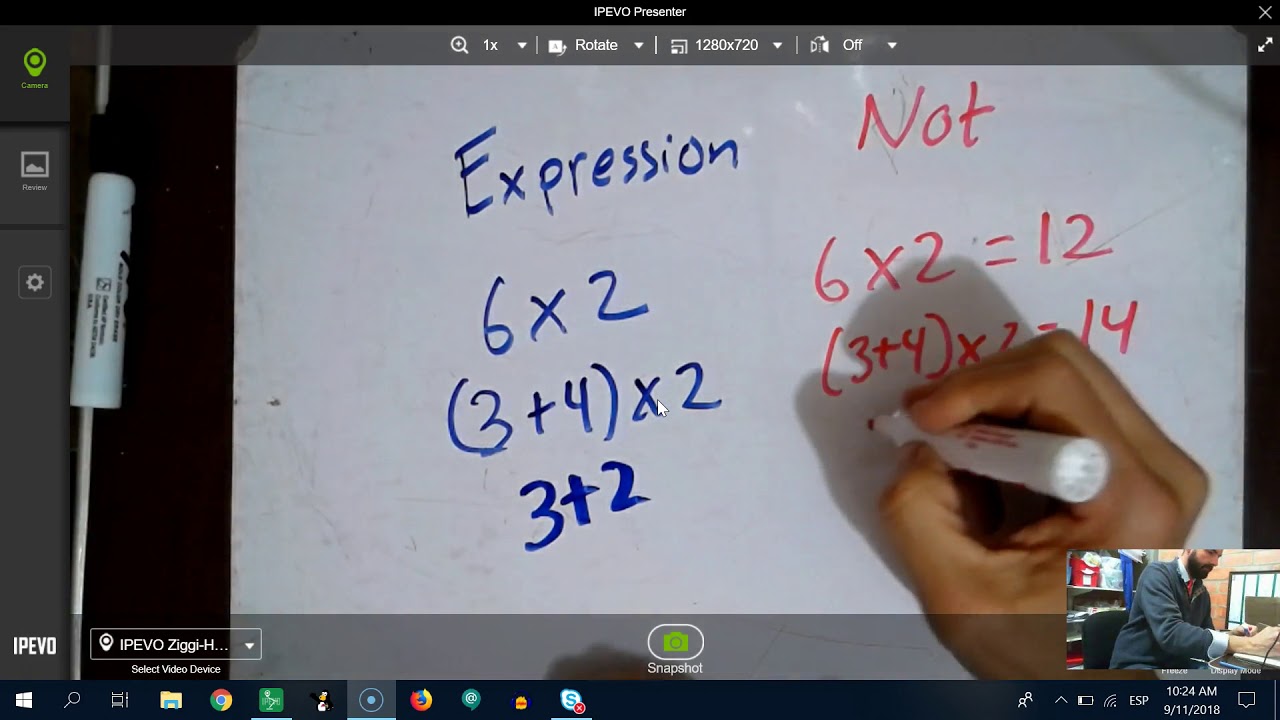 IPEVO Presenter
1x
Rotate
1280x720
Off
Camera
Review
Expression
6x2
(3+4)x2
3+2
Not
6x2=12
(3+4)x2=14
IPEVO
IPEVO Ziggi-H...
Select Video Device
Snapshot
Freeze
Display Mode
ESP
10:24 AM
9/11/2018